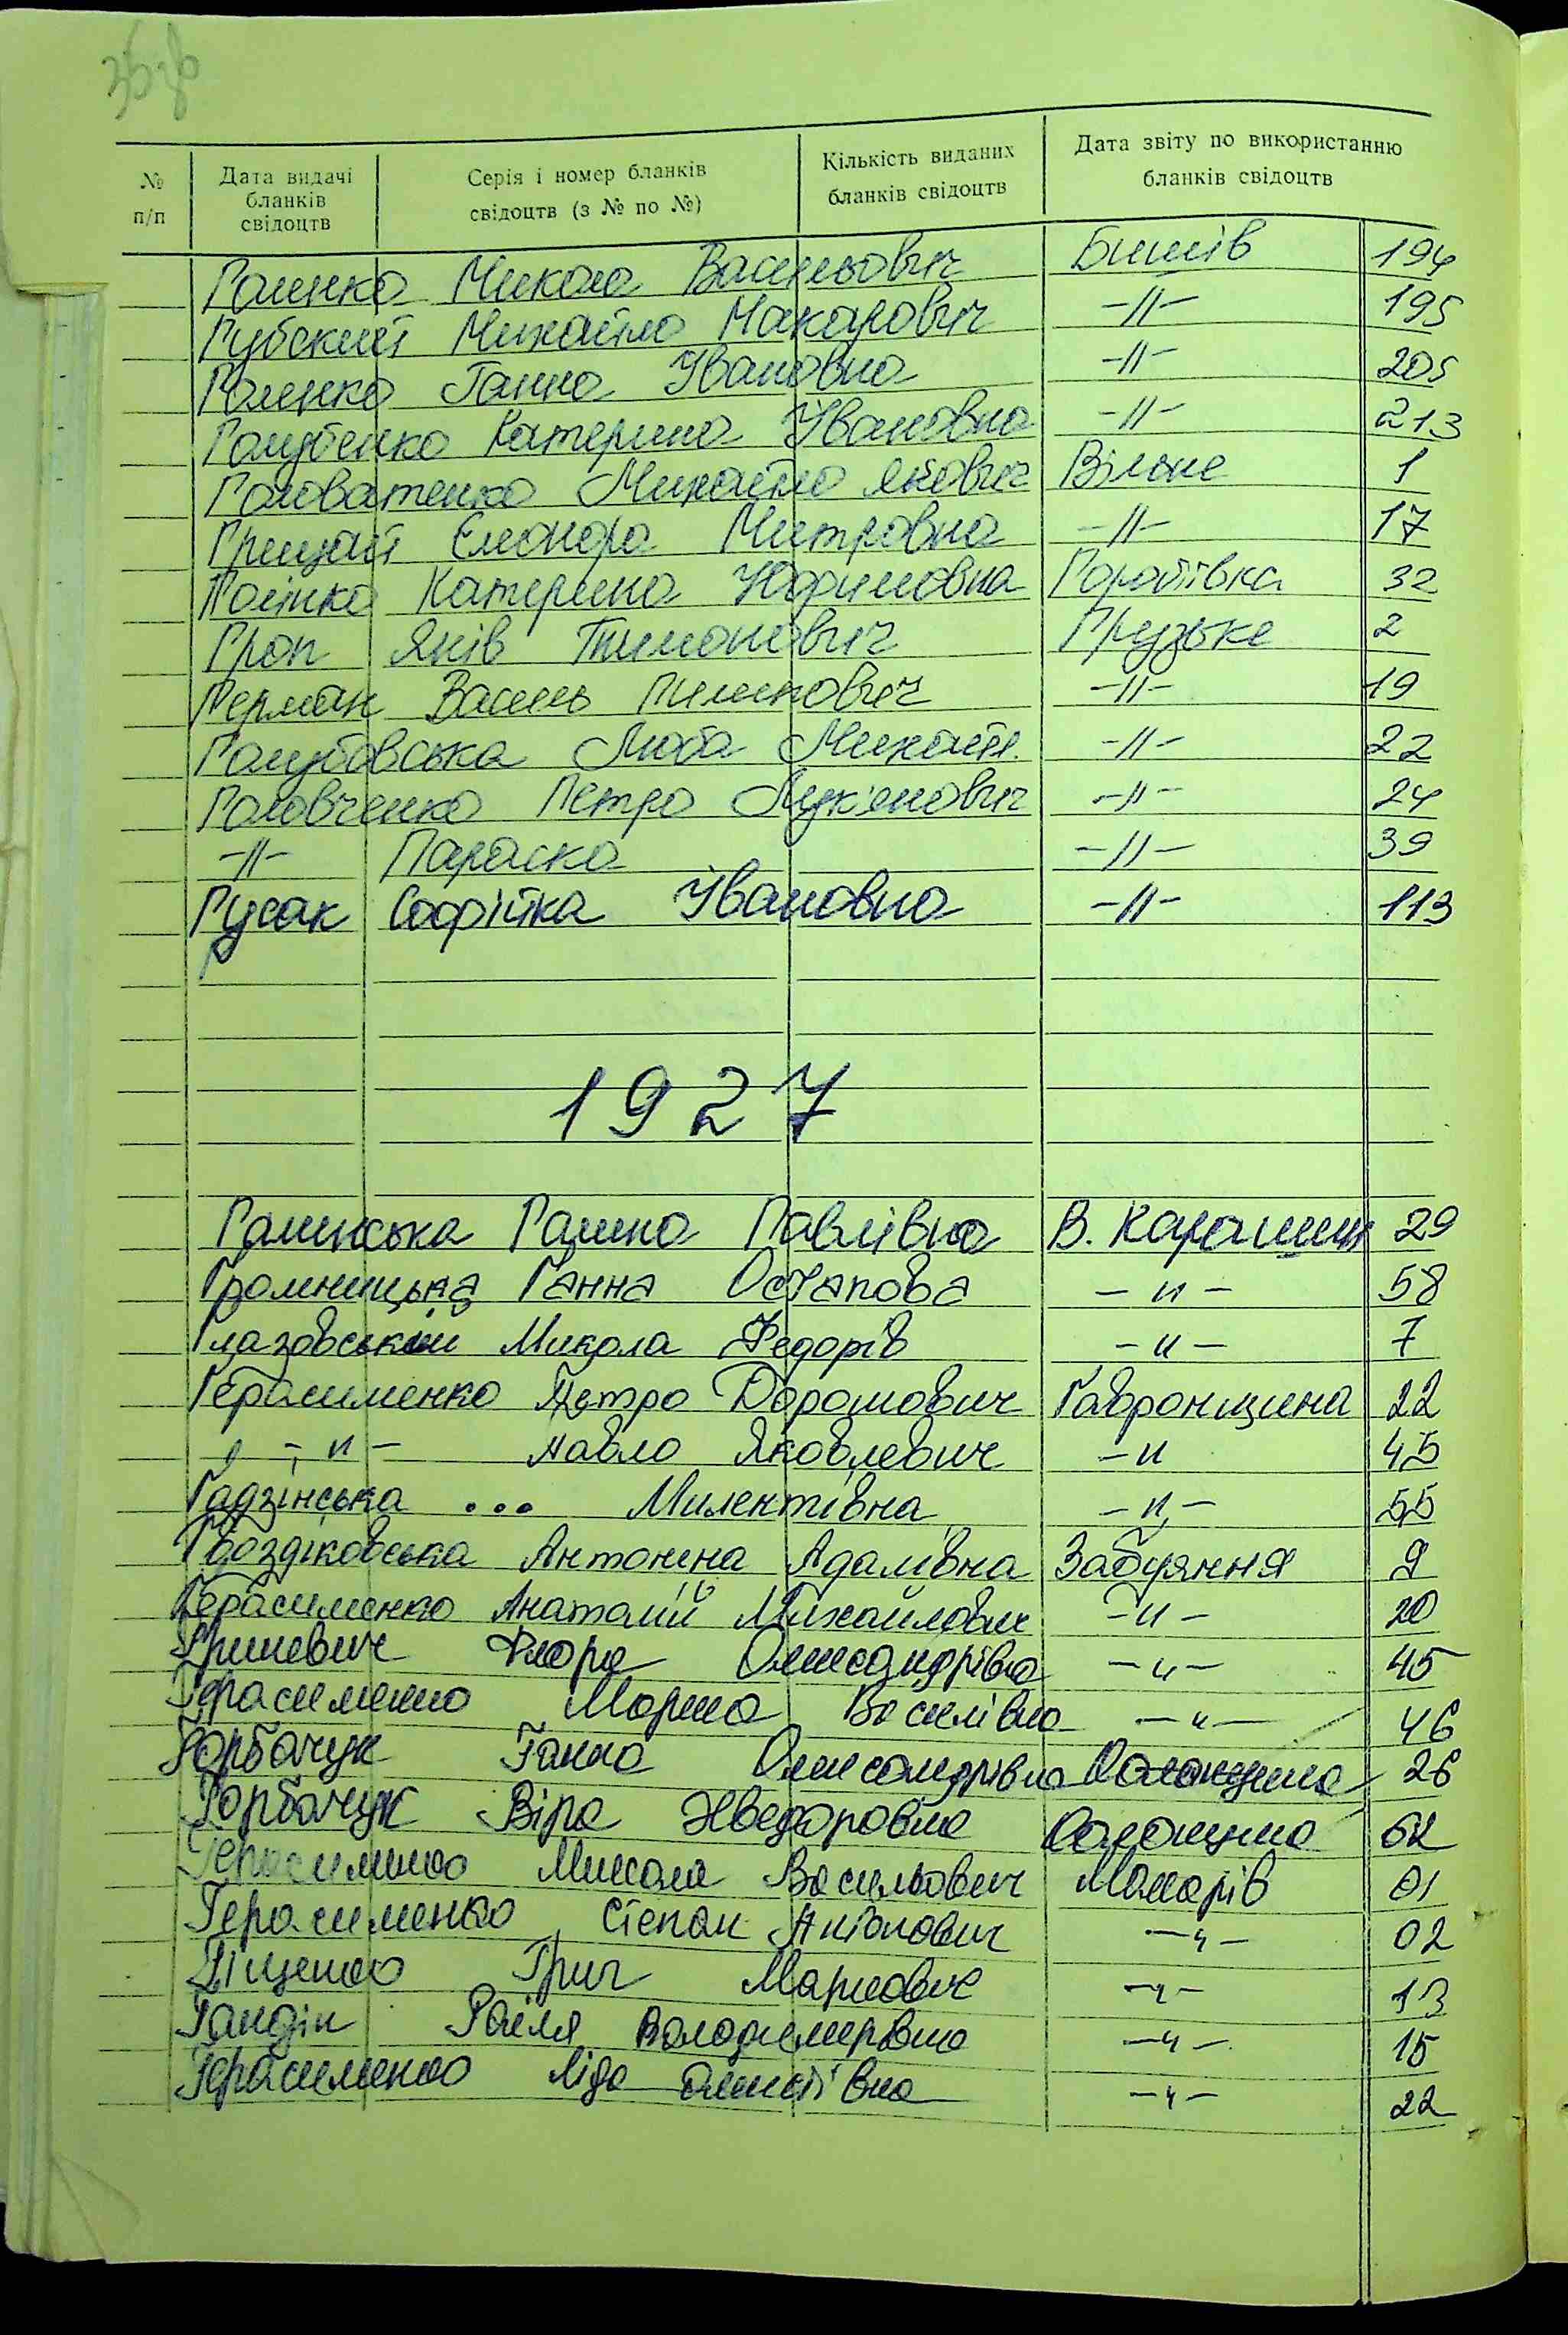 № п/п Дата видачі бланків свідоцтв Серія і номер бланків свідоцтв (з № по №) Кількість виданих бланків свідоцтв Дата звіту по використанню бланків свідоцтв
Галенко Микола Васильович Бишів 194
Губский Михайло Макарович -//- 195
Галенко Ганна Івановна -//- 205
Голубенко Катерина Івановна -//- 213
Головатенко Михайло Якович Вільне 1
Грицай Елеонора Митровна -//- 17
Катерина Юфимовна 32
Гроп Яків Тимонович Грузьке 2
Герман Василь Пилипович -//- 19
Голубовська Люба Михайл. -//- 22
Головченко Петро Лук'янович -//- 24
-//- Параска -//- 39
Гусак Софійка Івановна -//- 113
1927
Галинська Галина Павлівна В. Карашин 29
Громницька Ганна Остапова - и - 58
Глазовський Микола Федорів - и - 7
Герасименко Петро Дорошович Гавронщина 22
- и - Павло Яковлевич - и 45
Гадзінська ... Милентівна - и - 55
Гвоздіковська Антонина Адамівна Забуяння 9
Герасименко Анатолій Михайлович - и - 20
Гриневич Флора Олександрівна - и - 45
Герасименко Марина Василівна - и - 46
Горбачук Ганна Олександрівна 26
Горбачук Віра Хведоровна 62
Герасименко Микола Васильович Макарів 01
Герасименко Степан Антонович - и - 02
Григ Маркович - и - 13
Гандін Раїля Володимерівна - и - 15
Герасименко Ліда Олексіївна - и - 22